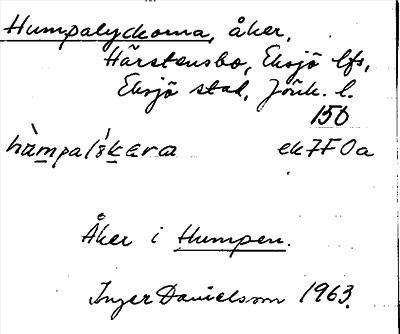 Humpalyckorna, åker,
Hårstensbo, Eksjö lfs,
Eksjö stad, Jönk. l.
150
ek 7F0a
Åker i Humpen.
Inger Danielsson 1963.